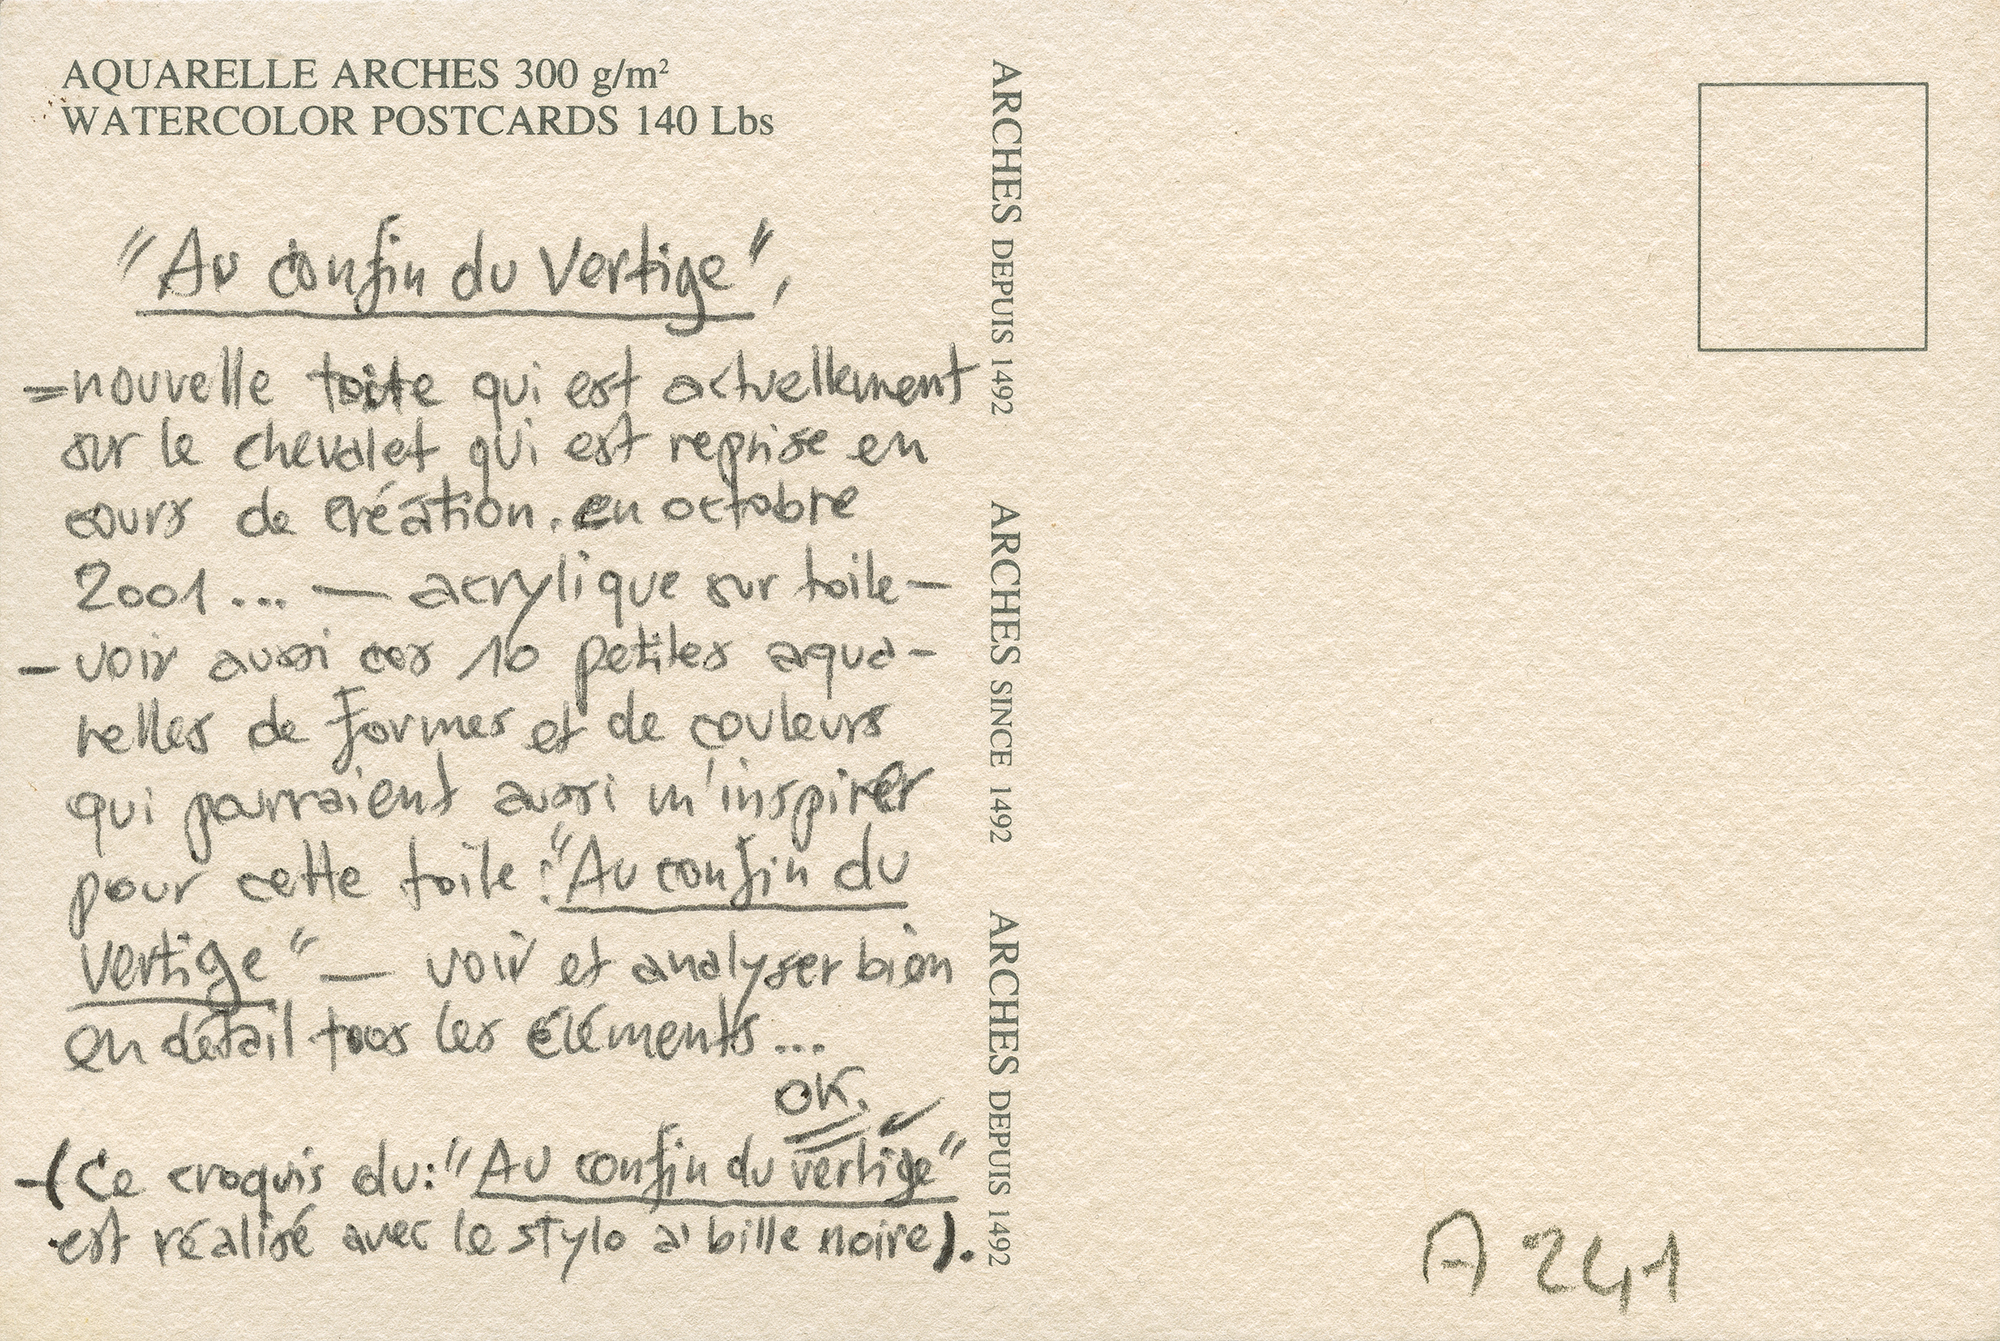 AQUARELLE ARCHES 300 g/m²
WATERCOLOR POSTCARDS 140 Lbs
"Au confin du Vertige",
=nouvelle toile qui est actuellement
sur le chevalet qui est reprise en
cours de création. en octobre
2001... — acrylique sur toile—
— voir aussi ces 10 petites aqua-
relles de formes et de couleurs
qui pourraient aussi m'inspirer
pour cette toile : "Au confin du
vertige" — voir et analyser bien
en détail tous les éléments...
OK.
-(Ce croquis du: "Au confin du vertige"
est réalisé avec le stylo à bille noire).
ARCHES DEPUIS 1492
ARCHES SINCE 1492
ARCHES DEPUIS 1492
A 241